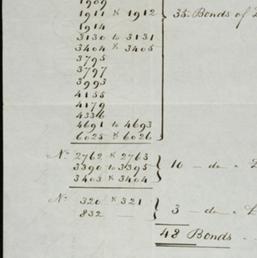 1909
1911 & 1912
1914
3130 to 3131
3404 & 3405
3795
3797
3993
4155
4179
4336
4691 to 4693
6025 & 6026
35 Bonds of
No 2762 & 2763
3390 to 3395
3403 & 3404
10 — do —
No 320 & 321
832
3 — do —
48 Bonds.